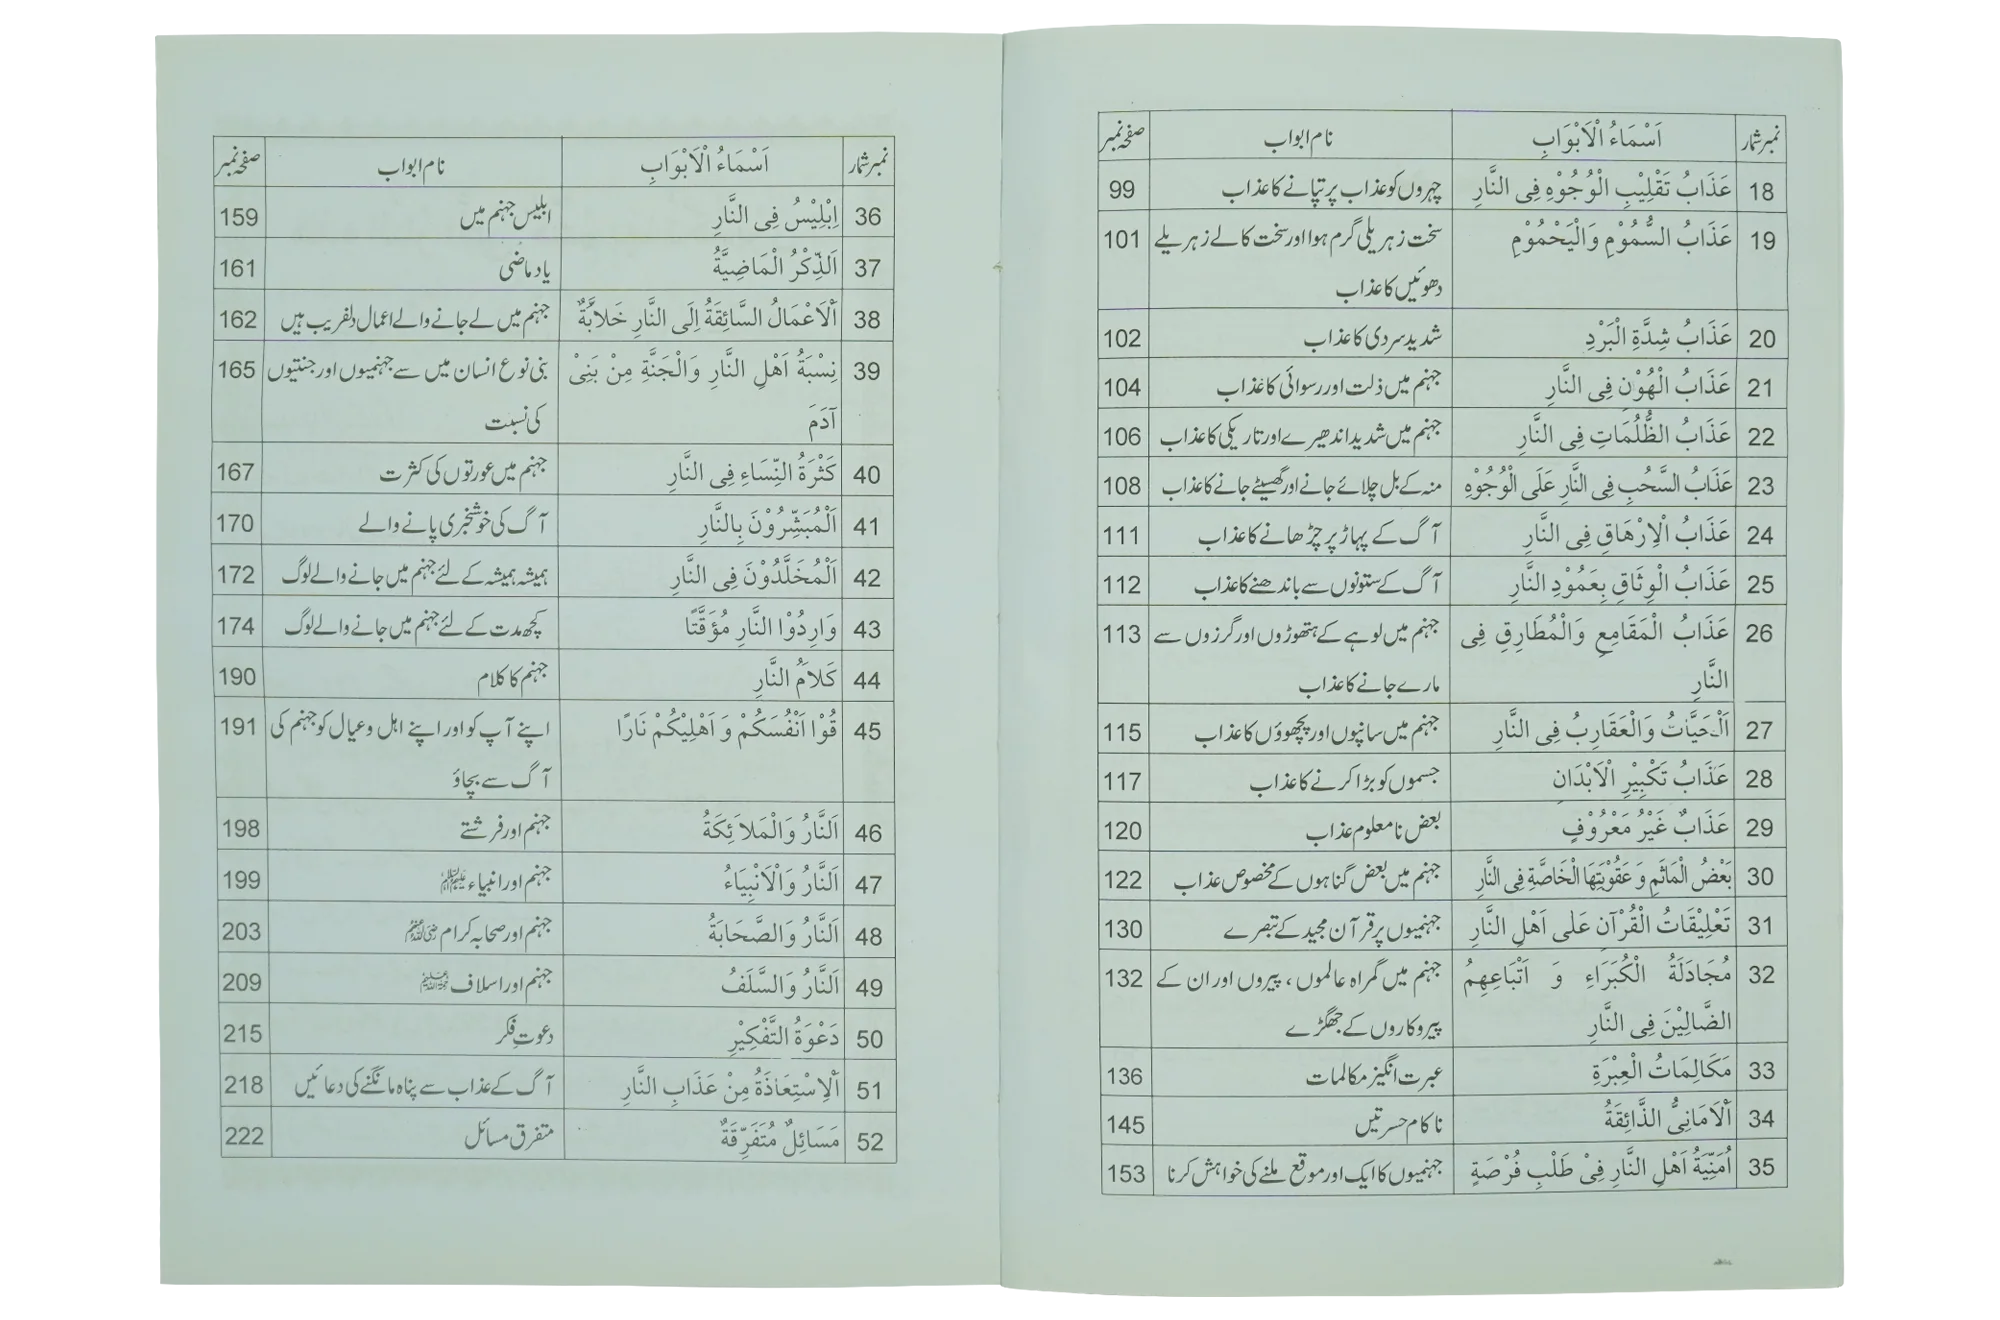 نمبر شمار اَسْمَاءُ الْاَبْوَابِ نام ابواب صفحہ نمبر
18 عَذَابُ تَقْلِيْبِ الْوُجُوْهِ فِی النَّارِ چہروں کو عذاب پر تپانے کا عذاب 99
19 عَذَابُ السُّمُوْمِ وَالْيَحْمُوْمِ سخت زہریلی گرم ہوا اور سخت کالے زہریلے 101
دھوئیں کا عذاب
20 عَذَابُ شِدَّةِ الْبَرْدِ شدید سردی کا عذاب 102
21 عَذَابُ الْهُوْنِ فِی النَّارِ جہنم میں ذلت اور رسوائی کا عذاب 104
22 عَذَابُ الظُّلُمَاتِ فِی النَّارِ جہنم میں شدید اندھیرے اور تاریکی کا عذاب 106
23 عَذَابُ السَّحْبِ فِی النَّارِ عَلَی الْوُجُوْهِ منہ کے بل چلائے جانے اور گھسیٹے جانے کا عذاب 108
24 عَذَابُ الْاِرْهَاقِ فِی النَّارِ آگ کے پہاڑ پر چڑھانے کا عذاب 111
25 عَذَابُ الْوِثَاقِ بِعَمُوْدِ النَّارِ آگ کے ستونوں سے باندھنے کا عذاب 112
26 عَذَابُ الْمَقَامِعِ وَالْمُطَارِقِ فِی جہنم میں لوہے کے ہتھوڑوں اور گرزوں سے 113
النَّارِ مارے جانے کا عذاب
27 اَلْحَيَّاتُ وَالْعَقَارِبُ فِی النَّارِ جہنم میں سانپوں اور بچھوؤں کا عذاب 115
28 عَذَابُ تَكْبِيْرِ الْاَبْدَانِ جسموں کو بڑا کرنے کا عذاب 117
29 عَذَابٌ غَيْرُ مَعْرُوْفٍ بعض نامعلوم عذاب 120
30 بَعْضُ الْمَاٰثِمِ وَ عَقُوْبَتِهَا الْخَاصَّةِ فِی النَّارِ جہنم میں بعض گناہوں کے مخصوص عذاب 122
31 تَعْلِيْقَاتُ الْقُرْآنِ عَلٰی اَهْلِ النَّارِ جہنمیوں پر قرآن مجید کے تبصرے 130
32 مُجَادَلَةُ الْكُبَرَاءِ وَ اَتْبَاعِهِمُ جہنم میں گمراہ عالموں، پیروں اور ان کے 132
الضَّالِيْنَ فِی النَّارِ پیروکاروں کے جھگڑے
33 مَكَالِمَاتُ الْعِبْرَةِ عبرت انگیز مکالمات 136
34 اَلْاَمَانِیُّ الذَّائِقَةُ ناکام حسرتیں 145
35 اُمَنِيَّةُ اَهْلِ النَّارِ فِیْ طَلْبِ فُرْصَةٍ جہنمیوں کا ایک اور موقع ملنے کی خواہش کرنا 153
نمبر شمار اَسْمَاءُ الْاَبْوَابِ نام ابواب صفحہ نمبر
36 اِبْلِيْسُ فِی النَّارِ ابلیس جہنم میں 159
37 اَلذِّكْرُ الْمَاضِيَّةُ یاد ماضی 161
38 اَلْاَعْمَالُ السَّائِقَةُ اِلَی النَّارِ خَلَابَّةٌ جہنم میں لے جانے والے اعمال دلفریب ہیں 162
39 نِسْبَةُ اَهْلِ النَّارِ وَالْجَنَّةِ مِنْ بَنِیْ بنی نوع انسان میں سے جہنمیوں اور جنتیوں 165
آدَمَ کی نسبت
40 كَثْرَةُ النِّسَاءِ فِی النَّارِ جہنم میں عورتوں کی کثرت 167
41 اَلْمُبَشِّرُوْنَ بِالنَّارِ آگ کی خوشخبری پانے والے 170
42 اَلْمُخَلَّدُوْنَ فِی النَّارِ ہمیشہ ہمیشہ کے لئے جہنم میں جانے والے لوگ 172
43 وَارِدُوْا النَّارِ مُؤَقَّتًا کچھ مدت کے لئے جہنم میں جانے والے لوگ 174
44 كَلاَمُ النَّارِ جہنم کا کلام 190
45 قُوْا اَنْفُسَكُمْ وَ اَهْلِيْكُمْ نَارًا اپنے آپ کو اور اپنے اہل و عیال کو جہنم کی 191
آگ سے بچاؤ
46 اَلنَّارُ وَالْمَلَائِكَةُ جہنم اور فرشتے 198
47 اَلنَّارُ وَالْاَنْبِيَاءُ جہنم اور انبیاء علیہم السلام 199
48 اَلنَّارُ وَالصَّحَابَةُ جہنم اور صحابہ کرام رضی اللہ عنہم 203
49 اَلنَّارُ وَالسَّلَفُ جہنم اور اسلاف 209
50 دَعْوَةُ التَّفْكِيْرِ دعوتِ فکر 215
51 اَلْاِسْتِعَاذَةُ مِنْ عَذَابِ النَّارِ آگ کے عذاب سے پناہ مانگنے کی دعائیں 218
52 مَسَائِلٌ مُتَفَرِّقَةٌ متفرق مسائل 222